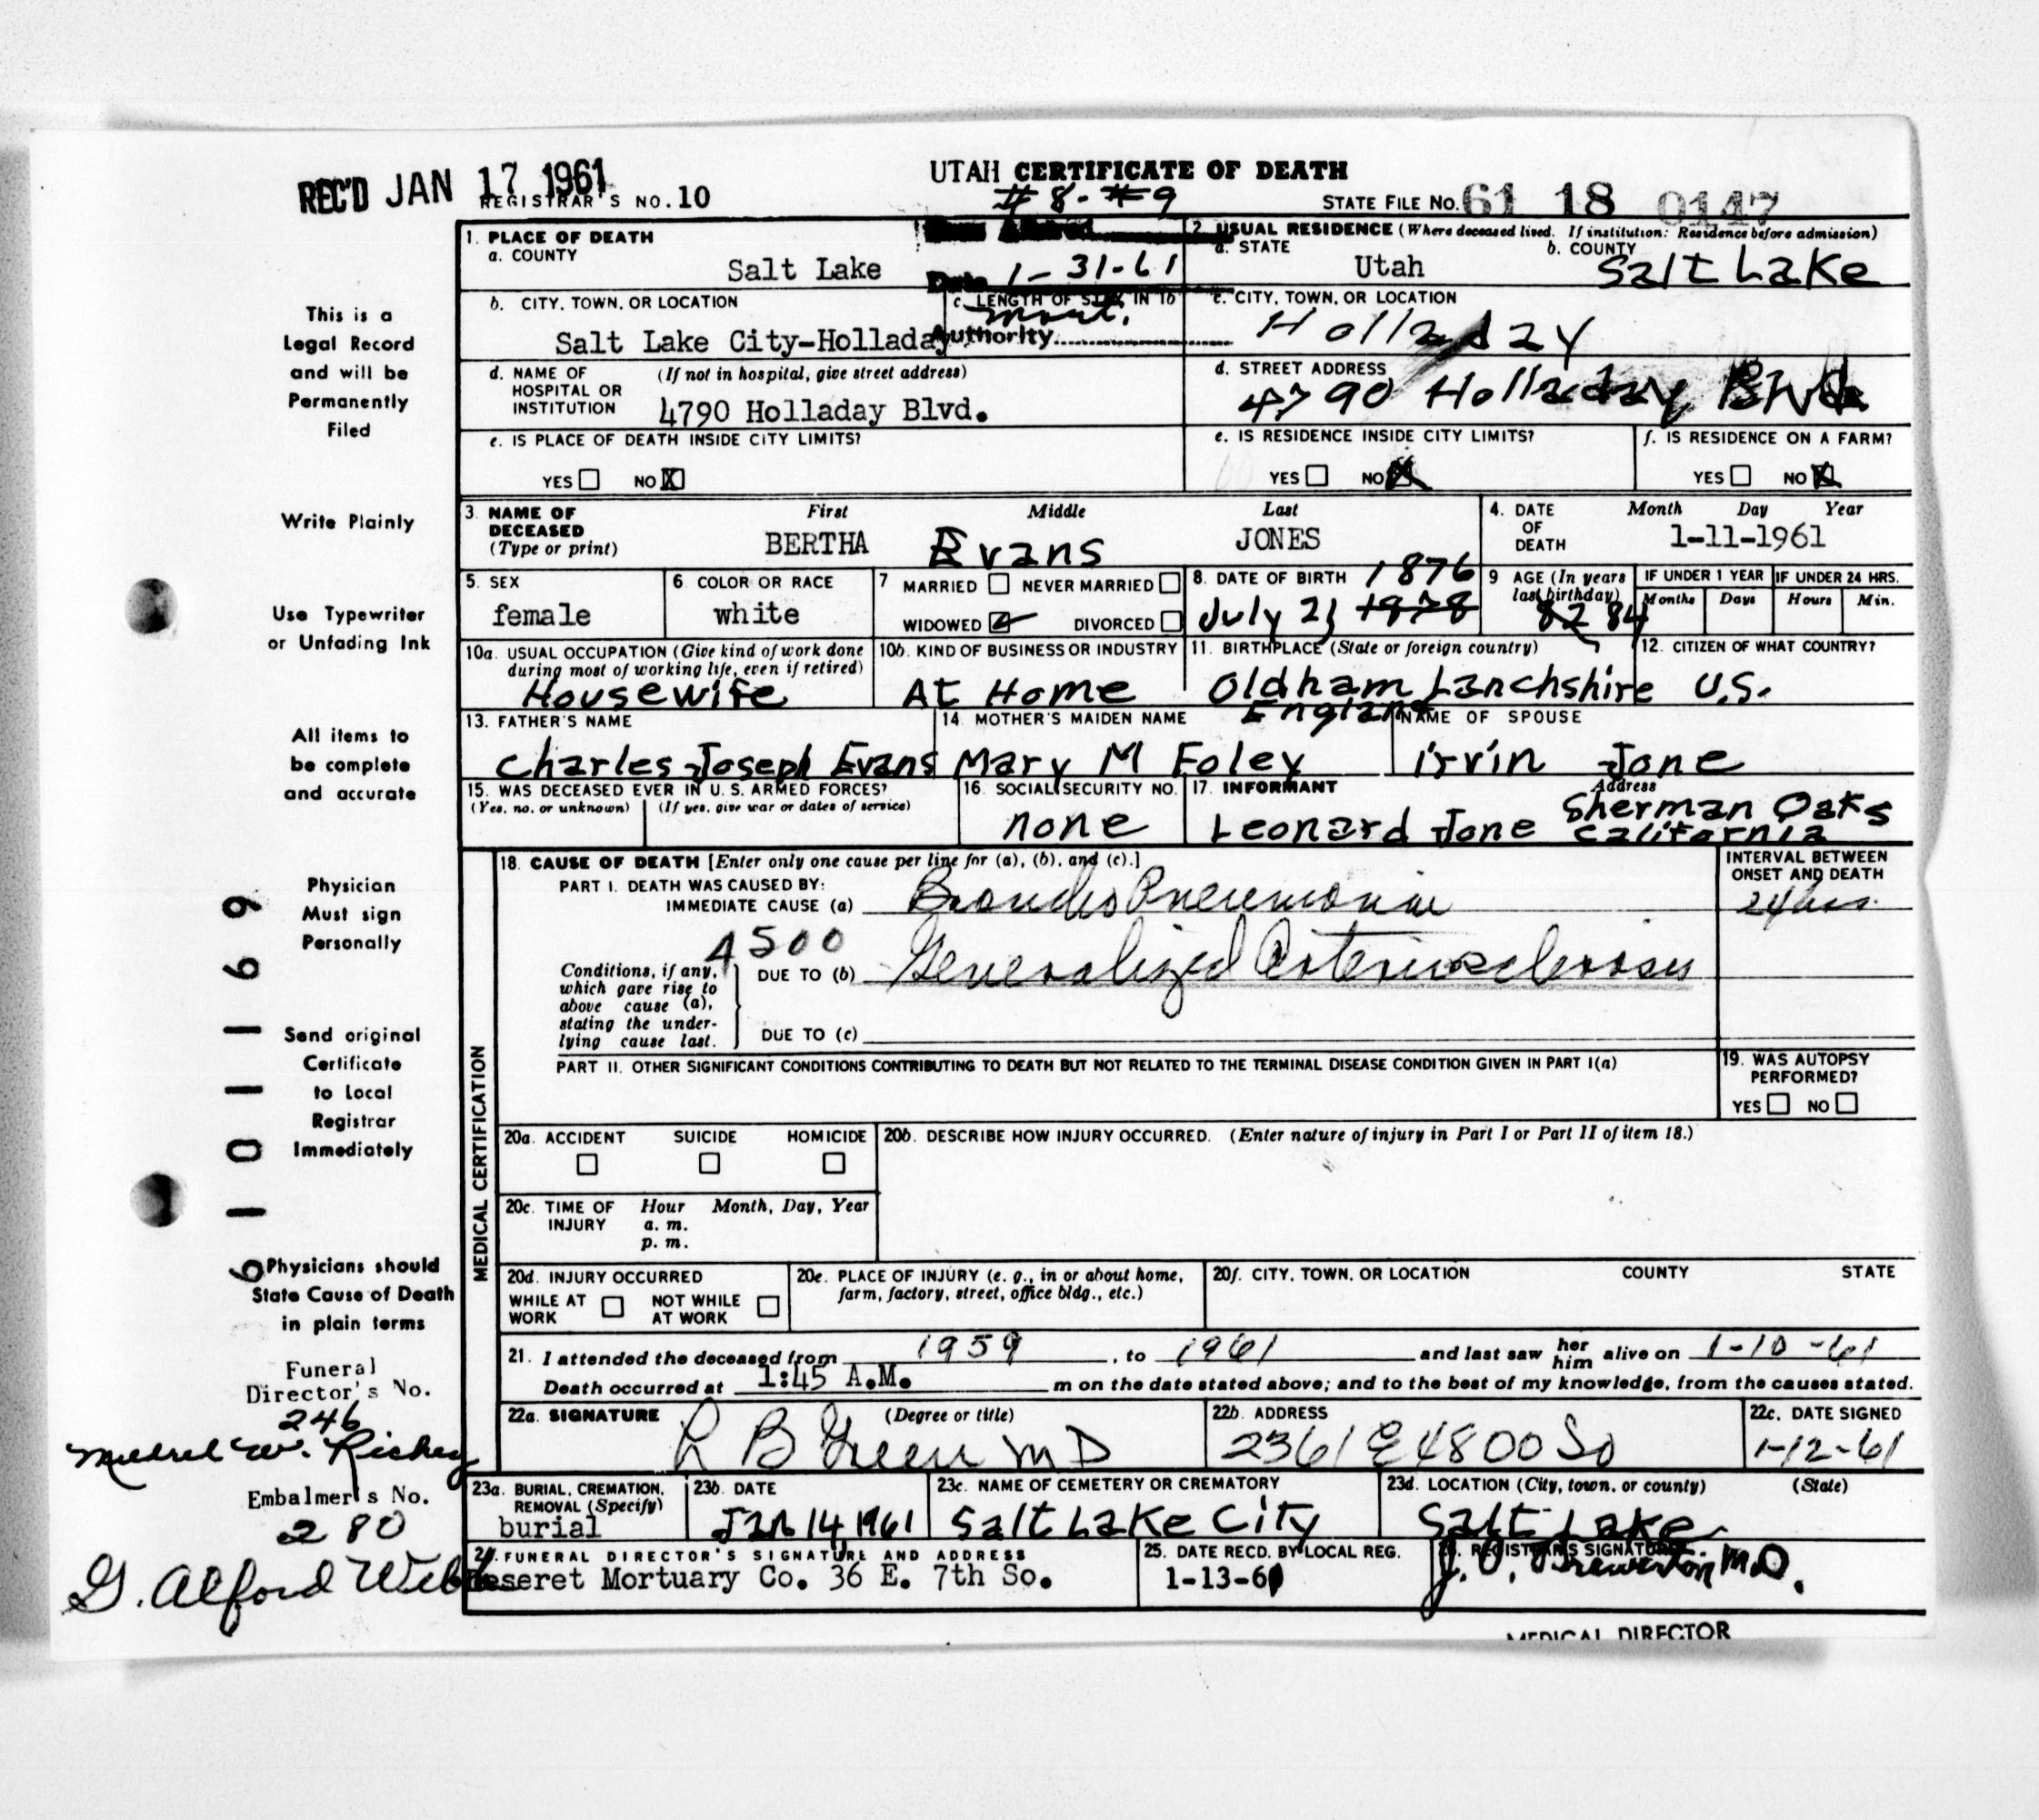 REC'D JAN 17 1961
REGISTRAR'S NO. 10
UTAH CERTIFICATE OF DEATH
# 8 - # 9
STATE FILE NO. 61 18 0147
1. PLACE OF DEATH
a. COUNTY
Salt Lake
Date 1-31-61
2. USUAL RESIDENCE (Where deceased lived. If institution: Residence before admission)
a. STATE
Utah
b. COUNTY
Salt Lake
b. CITY, TOWN, OR LOCATION
Salt Lake City-Holladay
c. LENGTH OF STAY IN 1b
mort.
Authority
c. CITY, TOWN, OR LOCATION
Holladay
d. NAME OF HOSPITAL OR INSTITUTION
(If not in hospital, give street address)
4790 Holladay Blvd.
d. STREET ADDRESS
4790 Holladay Blvd
e. IS PLACE OF DEATH INSIDE CITY LIMITS?
YES NO X
e. IS RESIDENCE INSIDE CITY LIMITS?
YES NO X
f. IS RESIDENCE ON A FARM?
YES NO X
3. NAME OF DECEASED (Type or print)
First Middle Last
BERTHA Evans JONES
4. DATE OF DEATH
Month Day Year
1-11-1961
5. SEX
female
6. COLOR OR RACE
white
7 MARRIED NEVER MARRIED
WIDOWED DIVORCED
8. DATE OF BIRTH 1876
July 23 1878
9 AGE (In years last birthday)
82 84
IF UNDER 1 YEAR
Months Days
IF UNDER 24 HRS.
Hours Min.
10a. USUAL OCCUPATION (Give kind of work done during most of working life, even if retired)
Housewife
10b. KIND OF BUSINESS OR INDUSTRY
At Home
11. BIRTHPLACE (State or foreign country)
Oldham Lanchshire
England
12. CITIZEN OF WHAT COUNTRY?
U.S.
13. FATHER'S NAME
Charles Joseph Evans
14. MOTHER'S MAIDEN NAME
Mary M Foley
NAME OF SPOUSE
irvin Jone
15. WAS DECEASED EVER IN U. S. ARMED FORCES?
(Yes, no, or unknown) (If yes, give war or dates of service)
16. SOCIAL SECURITY NO.
none
17. INFORMANT
Leonard Jone
Address
Sherman Oaks
California
MEDICAL CERTIFICATION
18. CAUSE OF DEATH [Enter only one cause per line for (a), (b), and (c).]
PART I. DEATH WAS CAUSED BY:
IMMEDIATE CAUSE (a) Broncho Pneumonia
INTERVAL BETWEEN ONSET AND DEATH
24 hrs.
4500
Conditions, if any, which gave rise to above cause (a), stating the underlying cause last.
DUE TO (b) Generalized Arteriosclerosis
DUE TO (c)
PART II. OTHER SIGNIFICANT CONDITIONS CONTRIBUTING TO DEATH BUT NOT RELATED TO THE TERMINAL DISEASE CONDITION GIVEN IN PART I(a)
19. WAS AUTOPSY PERFORMED?
YES NO
20a. ACCIDENT SUICIDE HOMICIDE
20b. DESCRIBE HOW INJURY OCCURRED. (Enter nature of injury in Part I or Part II of item 18.)
20c. TIME OF INJURY
Hour Month, Day, Year
a. m.
p. m.
20d. INJURY OCCURRED
WHILE AT WORK NOT WHILE AT WORK
20e. PLACE OF INJURY (e. g., in or about home, farm, factory, street, office bldg., etc.)
20f. CITY, TOWN, OR LOCATION COUNTY STATE
21. I attended the deceased from 1959, to 1961 and last saw her him alive on 1-10-61
Death occurred at 1:45 A.M. m on the date stated above; and to the best of my knowledge, from the causes stated.
22a. SIGNATURE (Degree or title)
L B Green MD
22b. ADDRESS
2361 E 4800 So
22c. DATE SIGNED
1-12-61
23a. BURIAL, CREMATION, REMOVAL (Specify)
burial
23b. DATE
Jan 14 1961
23c. NAME OF CEMETERY OR CREMATORY
Salt Lake City
23d. LOCATION (City, town, or county) (State)
Salt Lake
24. FUNERAL DIRECTOR'S SIGNATURE AND ADDRESS
Deseret Mortuary Co. 36 E. 7th So.
25. DATE RECD. BY LOCAL REG.
1-13-61
REGISTRAR'S SIGNATURE
M.D.
MEDICAL DIRECTOR
This is a
Legal Record
and will be
Permanently
Filed
Write Plainly
Use Typewriter
or Unfading Ink
All items to
be complete
and accurate
Physician
Must sign
Personally
Send original
Certificate
to Local
Registrar
Immediately
Physicians should
State Cause of Death
in plain terms
6 1 0 1 1 6 9
Funeral
Director's No.
246
Mildred W. Richey
Embalmer's No.
280
G. Alford Webb